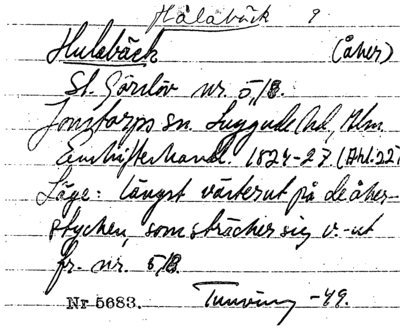 Hålabäck 9
Hulabäck (åker)
St. Görslöv nr. 5, 8.
Jonstorps sn. Luggude hd, Mlm.
Enskifteshandl. 1824-27 (Akt. 22)
Läge: längst västerut på de åker-
stycken, som sträcker sig v.-ut
fr. nr. 5, 8.
Nr 5683. Tunving -49.